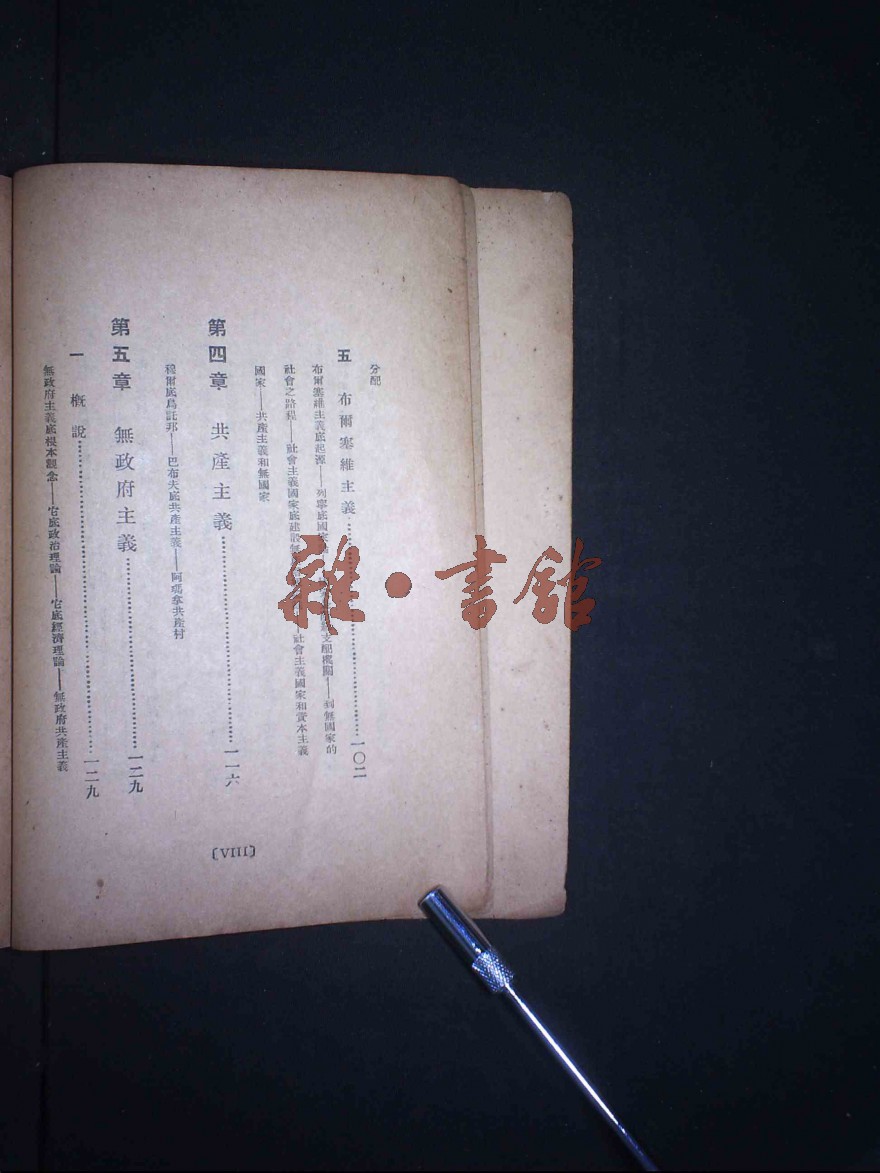 分配
五 布爾塞維主義 一〇二
布爾塞維主義底起源——列寧底國家 支配機關——到無國家的
社會之路程——社會主義國家底建設 社會主義國家和資本主義
國家——共產主義和無國家
第四章 共產主義 一一六
穆爾底烏託邦——巴布夫底共產主義——阿瑪拿共產村
第五章 無政府主義 一二九
一 槪說 一二九
無政府主義底根本觀念——它底政治理論——它底經濟理論——無政府共產主義
〔VIII〕
雜·書館